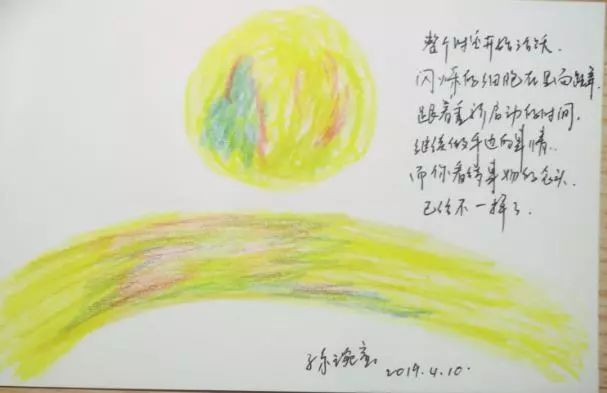 整个时空开始活跃.
闪烁的细胞在里面跳舞.
跟着重新启动的时间,
继续做手边的事情.
而你看待事物的念头.
已经不一样了.
孙琬 2019.4.10.